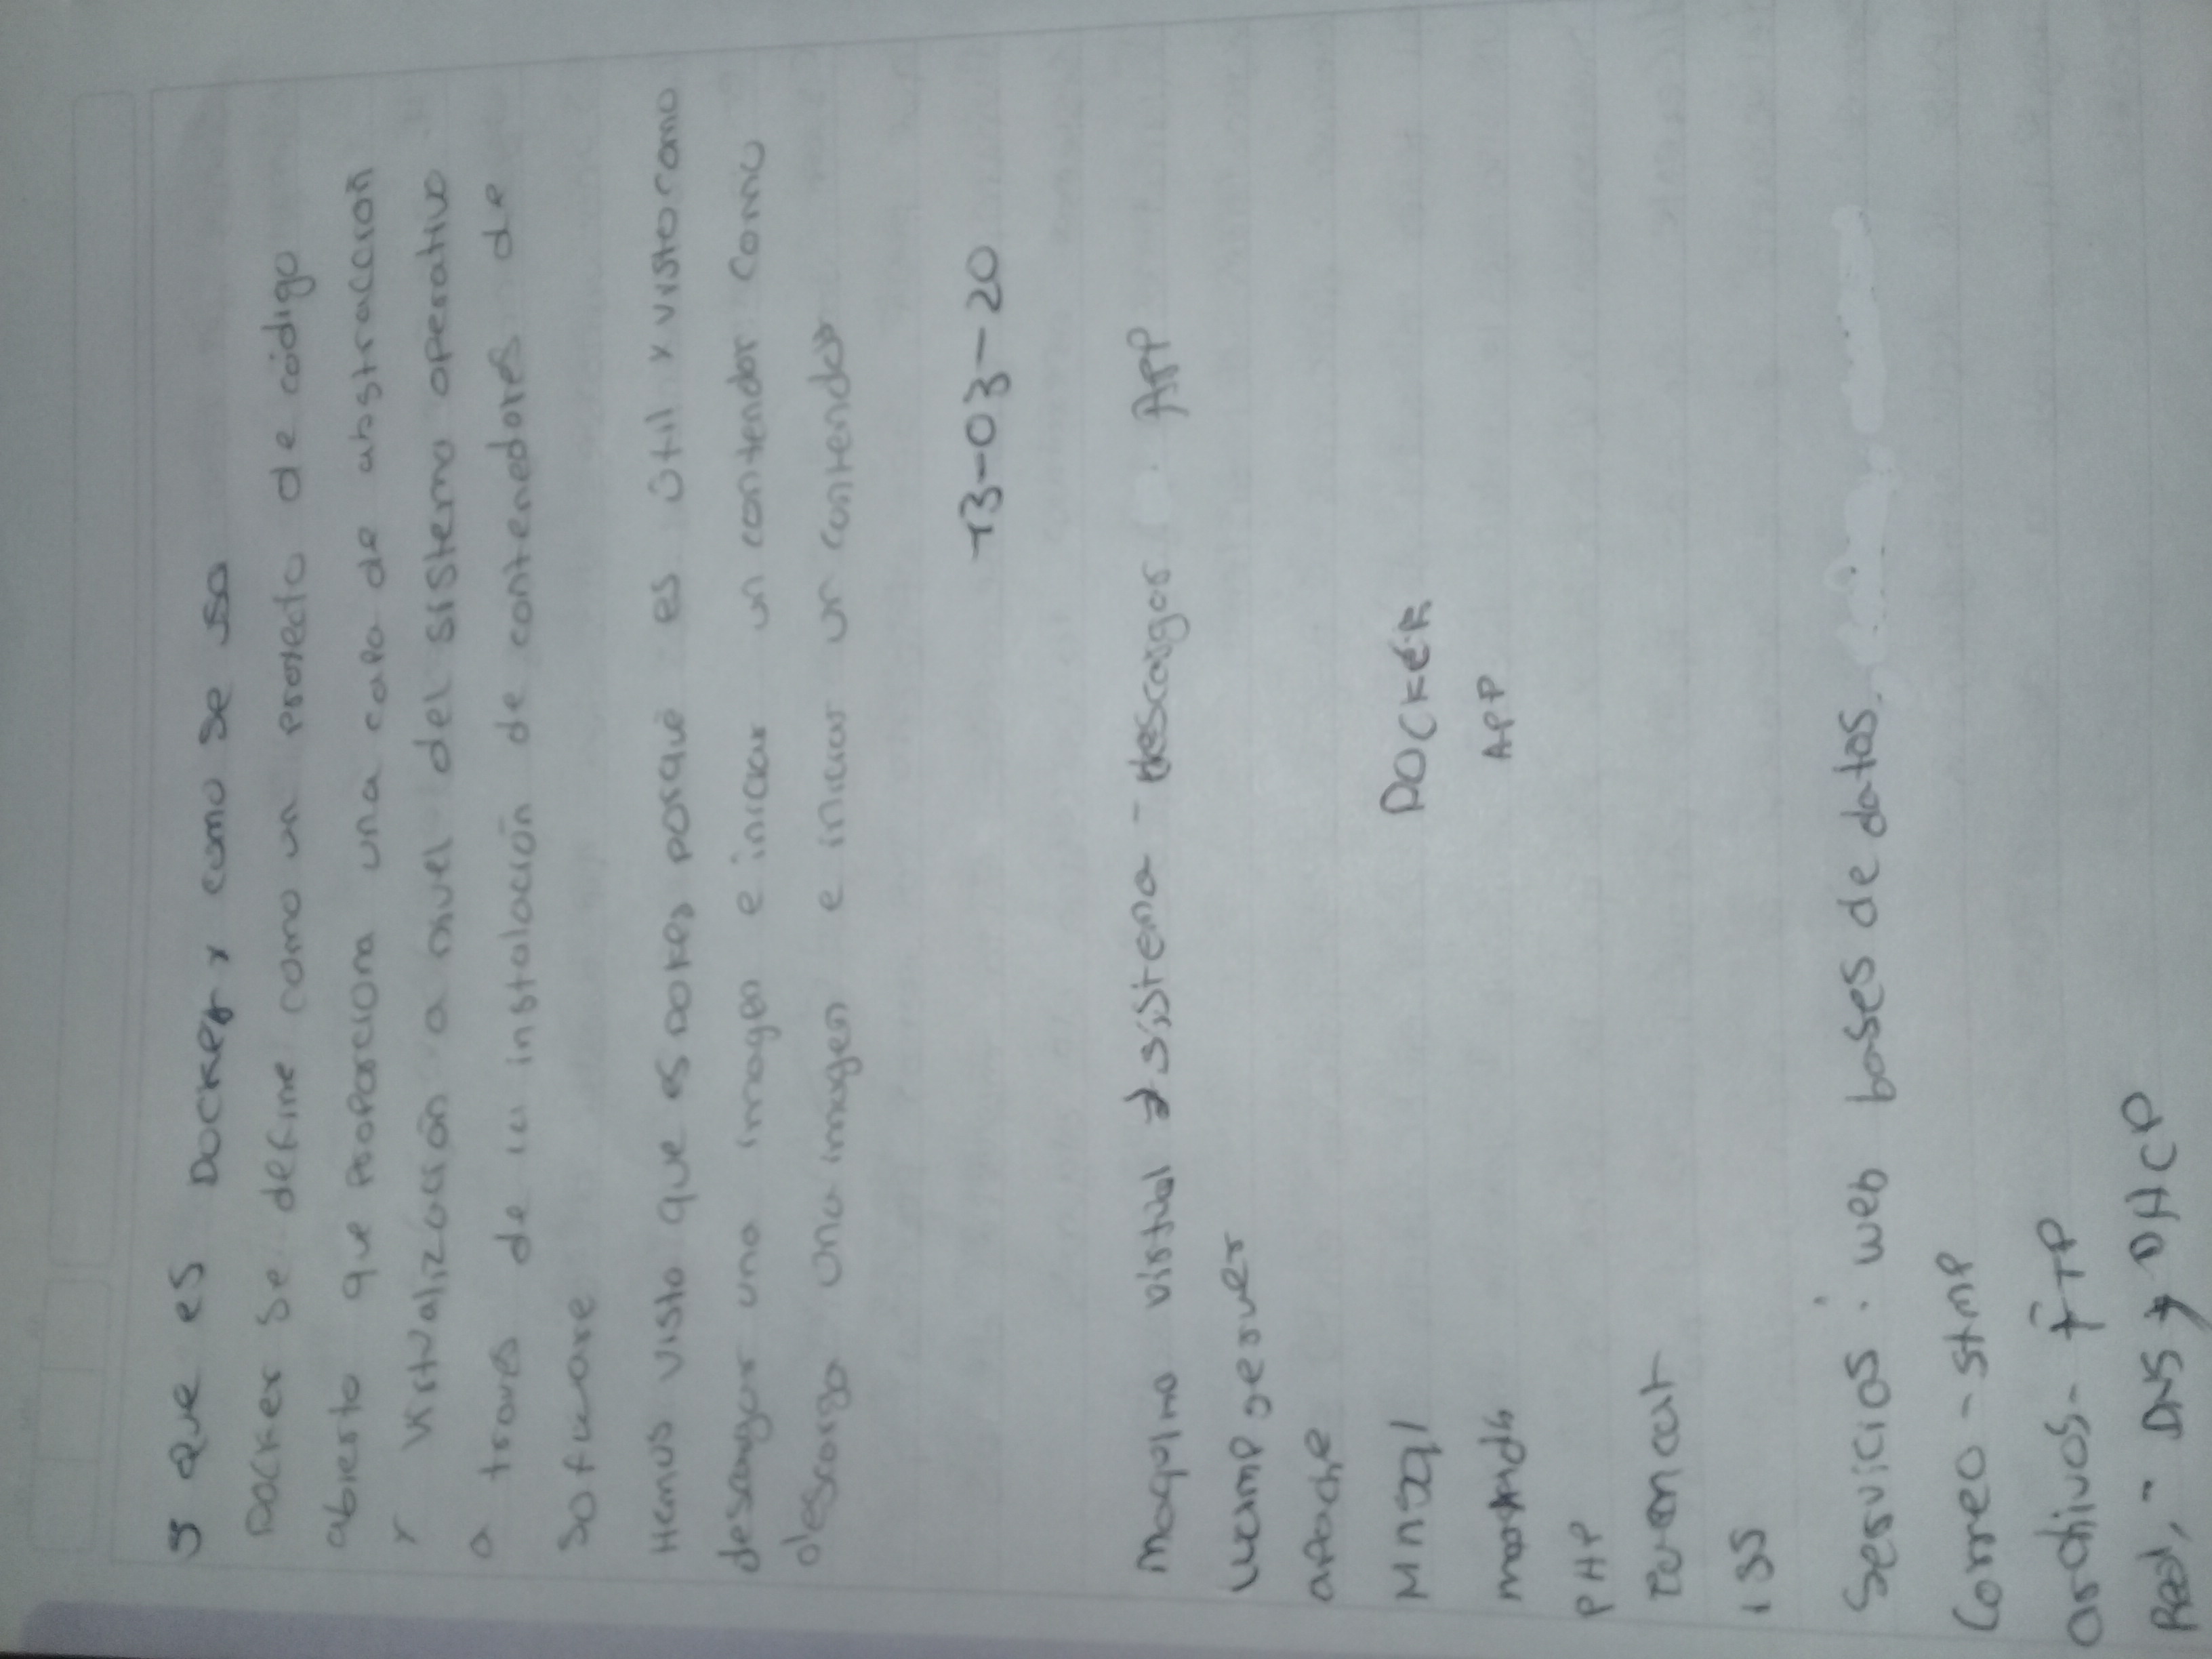 5 que es Docker y como se usa
Docker se define como un proyecto de código
abierto que proporciona una capa de abstracción
y Virtualización a nivel del sistema operativo
a través de la instalación de contenedores de
sofware
Hemos visto que es Doker, porqué es útil y visto como
descargar una imagen e iniciar un contendor como
descarga una imagen e iniciar un contendor
13-03-20
maquina virtual → sistema - descargar APP
wamp server
apache
Mnsql DOCKER
APP
PHP
tomcat
ISS
Servicios: web bases de datos.
Correo - stmp
archivos - FTP
Red, - DNS y DHCP